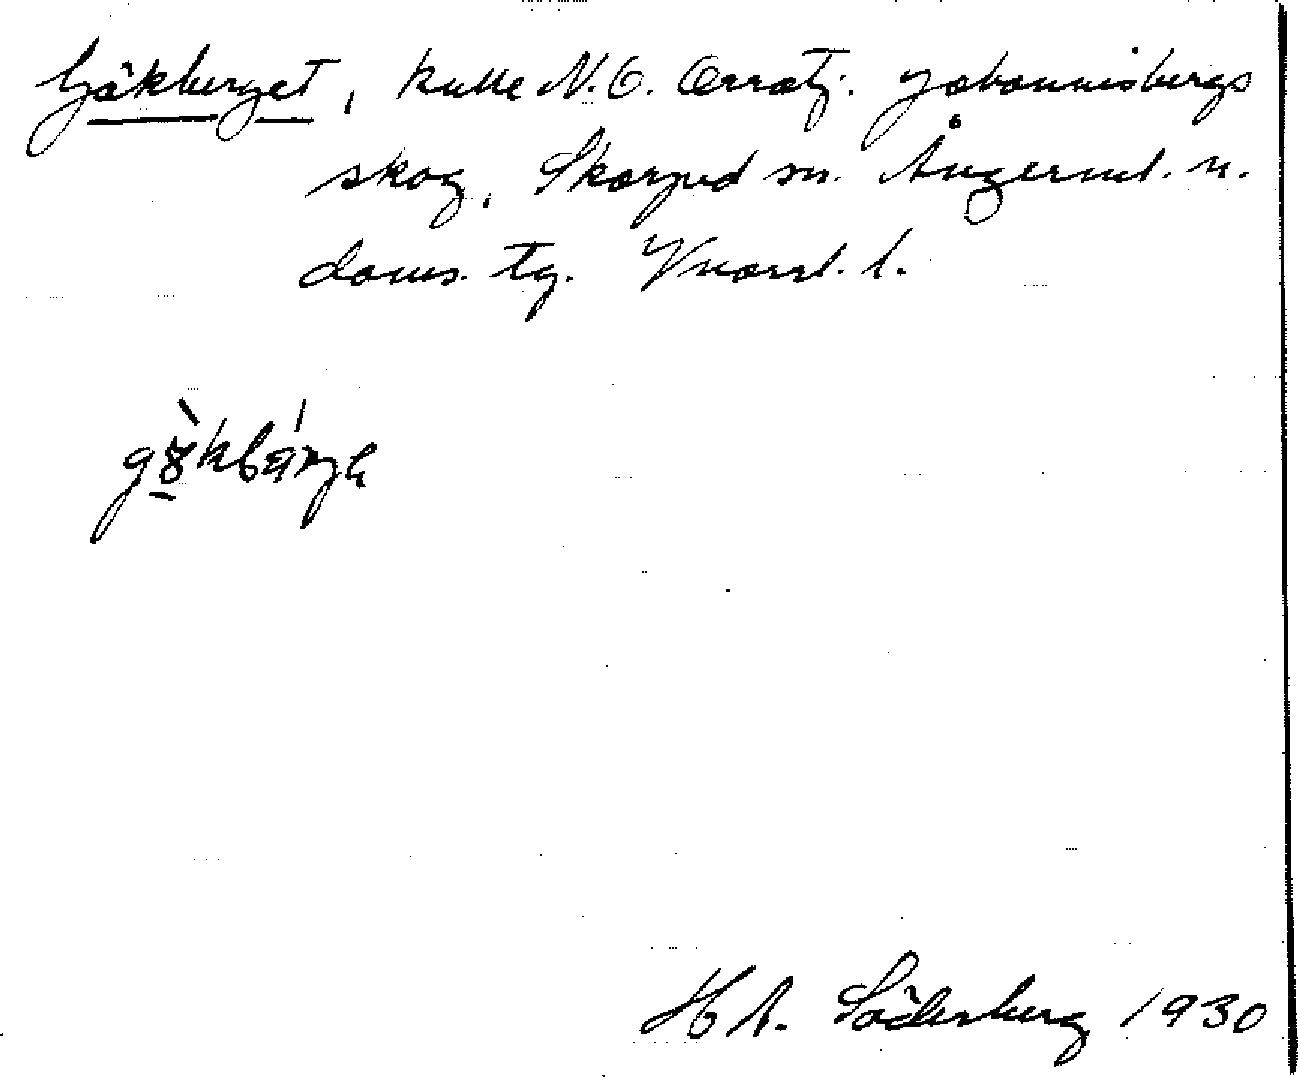 Gökberget, kulle N.O. Orratj. Johannisbergs
skog, Skorped sn. Ångerml. n.
doms. tg. Vnorrl. l.
H A. Söderberg 1930